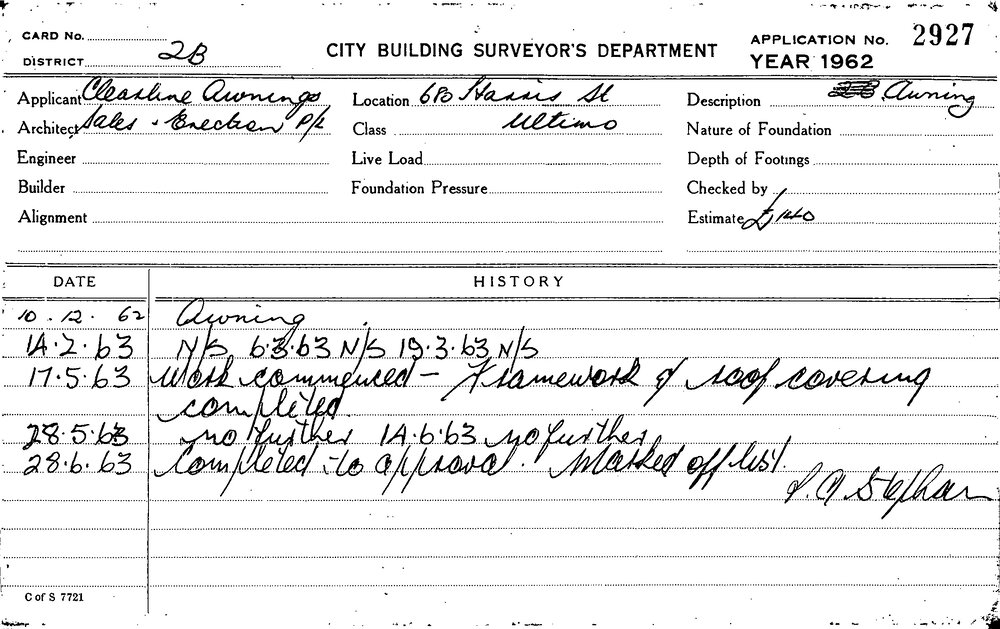 CARD No.
DISTRICT 2B
CITY BUILDING SURVEYOR'S DEPARTMENT
APPLICATION No. 2927
YEAR 1962
Applicant Clearline Awnings
Architect Sales & Erection P/L
Engineer
Builder
Alignment
Location 680 Harris St
Class Ultimo
Live Load
Foundation Pressure
Description Awning
Nature of Foundation
Depth of Footings
Checked by
Estimate £140
DATE HISTORY
10.12.62 Awning
14.2.63 N/S 6.3.63 N/S 19.3.63 N/S
17.5.63 Work commenced - Framework of roof covering
completed.
28.5.63 no further 14.6.63 no further
28.6.63 Completed to approval. Marked off list.
C of S 7721